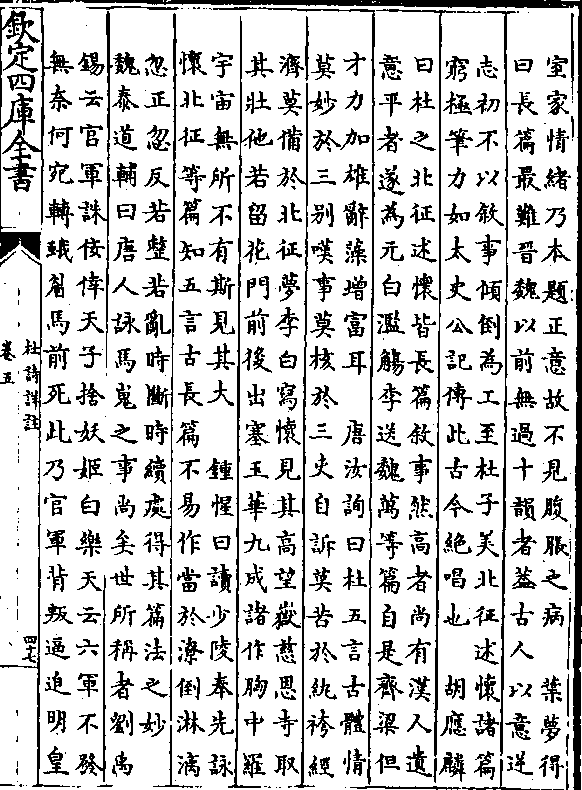 室家情緒乃本題正意故不見腹脹之病　葉夢得
曰長篇最難晉魏以前無過十韻者蓋古人以意逆
志初不以敘事傾倒為工至杜子美北征述懷諸篇
窮極筆力如太史公記傳此古今絶唱也　胡應麟
曰杜之北征述懷皆長篇敘事然高者尚有漢人遺
意平者遂為元白濫觴李送魏萬等篇自是齊梁但
才力加雄辭藻增富耳　唐汝詢曰杜五言古體情
莫妙於三别嘆事莫核於三吏自訴莫苦於紈袴經
濟莫備於北征夢李白寫懷見其高望嶽慈恩寺取
其壯他若留花門前後出塞玉華九成諸作胸中羅
宇宙無所不有斯見其大　鍾惺曰讀少陵奉先詠
懷北征等篇知五言古長篇不易作當於潦倒淋漓
忽正忽反若整若亂時斷時續處得其篇法之妙
魏泰道輔曰唐人詠馬嵬之事尚矣世所稱者劉禹
錫云官軍誅佞倖天子捨妖姬白樂天云六軍不發
無奈何宛轉蛾眉馬前死此乃官軍背叛逼迫明皇
欽定四庫全書
杜詩詳註
卷五
四七